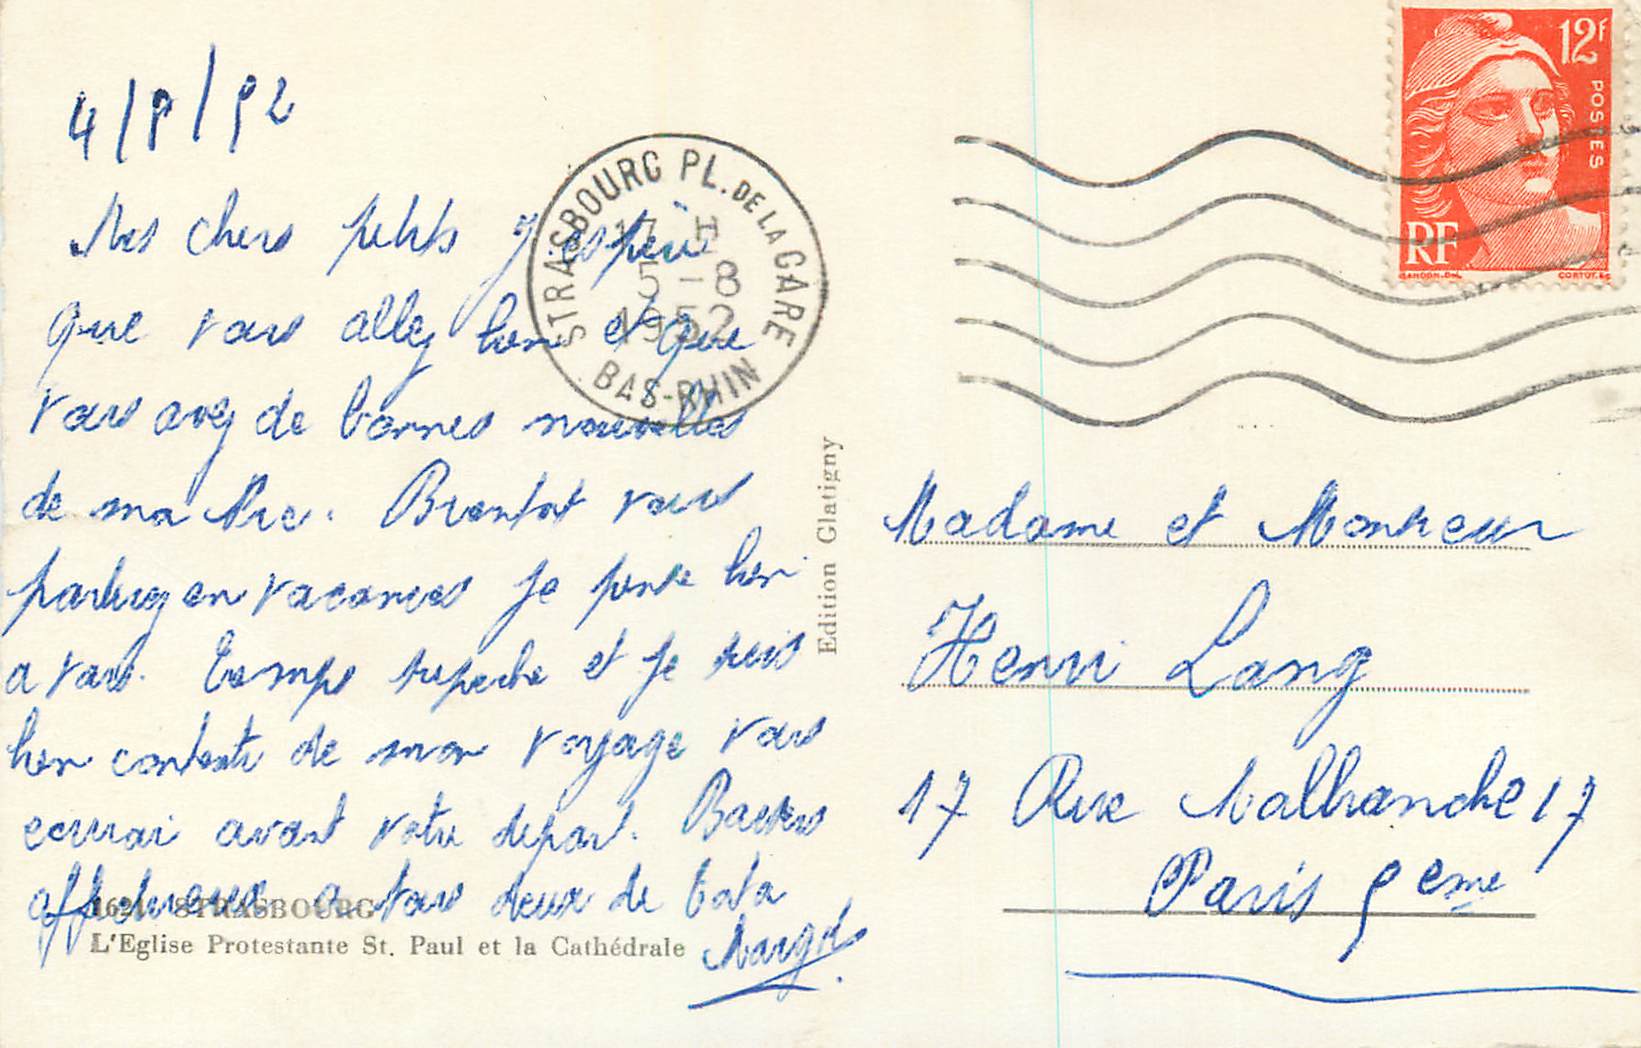 4/8/52
Mes chers petits J'espère
que vous allez bien et que
vous avez de bonnes nouvelles
de ma Mie. Brentot vous
partirez en vacances je pense bien
a vous. Temps superbe et je suis
bien contente de mon voyage vous
ecrirai avant votre depart. Baisers
affectueux a tous deux de Tata
Margot
1621 STRASBOURG
L'Eglise Protestante St. Paul et la Cathédrale
Edition Glatigny
STRASBOURG PL. DE LA GARE
17 H
5 - 8
1952
BAS-RHIN
12F
POSTES
RF
GANDON.DEL
CORTOT.SC
Madame et Monsieur
Henri Lang
17 Rue Malbranche 17
Paris 5eme